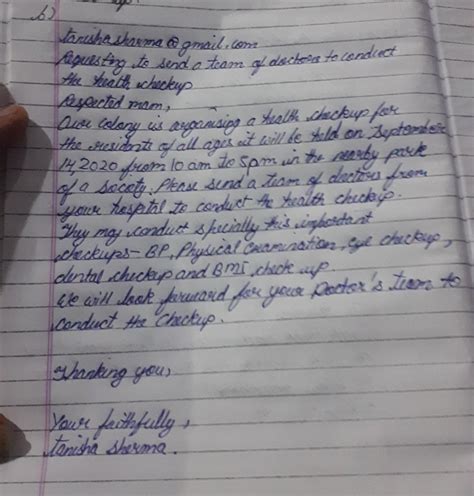 b)
tanishasharma@gmail.com
Requesting to send a team of doctors to conduct
the health checkup
Respected mam,
Our colony is organising a health checkup for
the residents of all ages it will be held on September
14, 2020 from 10 am to 5 pm in the nearby park
of a society. Please send a team of doctors from
your hospital to conduct the health checkup.
They may conduct specially this important
checkups - BP, Physical Examination, eye checkup,
dental checkup and BMI check up.
We will look forward for your Doctor's team to
conduct the Checkup.
Thanking you,
Your faithfully,
tanisha sharma.